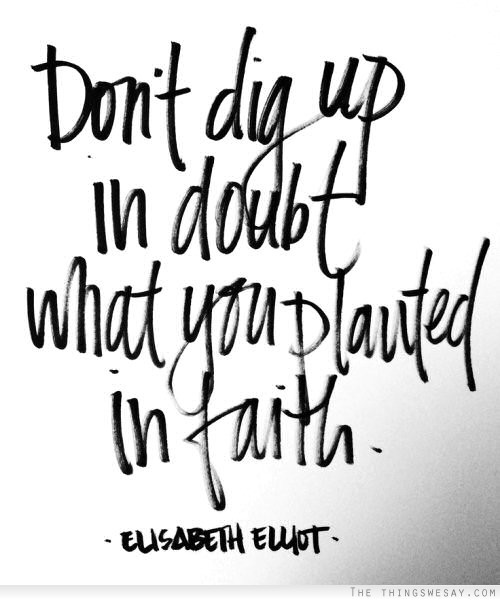 Don't dig up
in doubt
what you planted
in faith.
- ELISABETH ELLIOT -
THE THINGSWESAY.COM